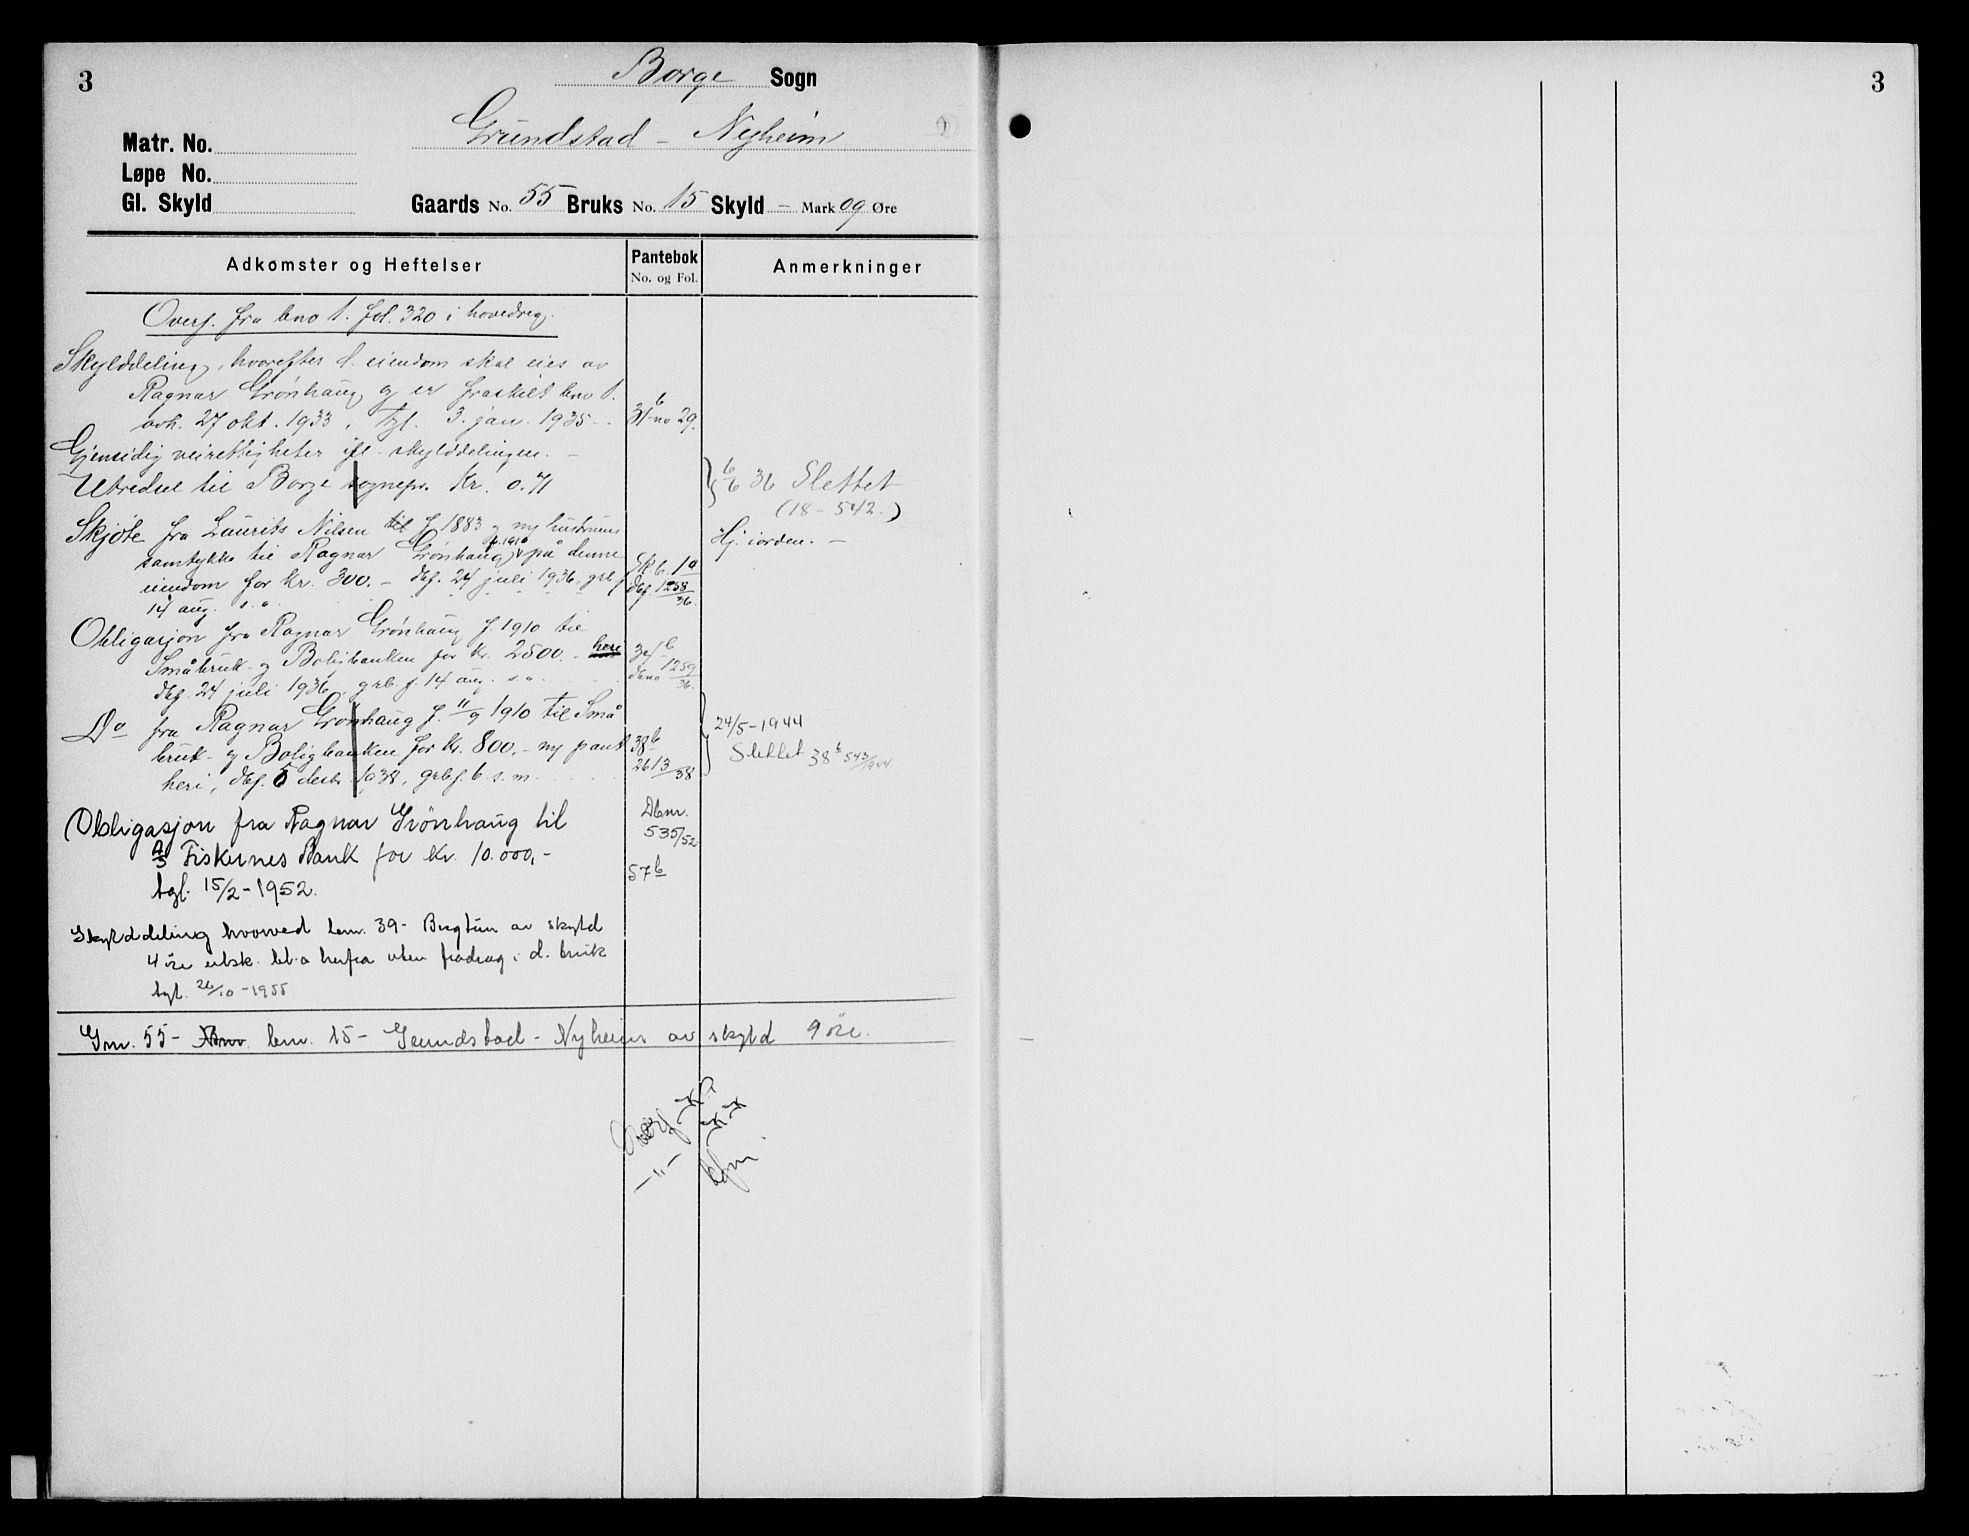 3
Borge Sogn
Grundstad - Nyheim
Matr. No.
Løpe No.
Gl. Skyld
Gaards No. 55 Bruks No. 15 Skyld - Mark 09 Øre
Adkomster og Heftelser
Pantebok
No. og Fol.
Anmerkninger
Overf. fra bno 1. fol. 320 i hovedreg.
Skylddeling, hvorefter d. eiendom skal eies av
Ragnar Grønhaug og er fraskilt bno 1.
avh. 27 okt. 1933, tgl. 3. jan. 1935.
31 b no 29.
Gjensidig veirettigheter ifl. skylddelingen. -
Utredsel til Borge sognepr. Kr. 0.71
6/6 36 Slettet
(18-542.)
Skjøte fra Laurits Nilsen f 1883 og m/ hustrues
samtykke til Ragnar Grønhaug f. 1910 på denne
eiendom for kr. 300.- dgf. 24 juli 1936, grb.f
14 aug. s.a.
Sk b. 10
dbf. 1258/36.
Hj. i orden. -
Obligasjon fra Ragnar Grønhaug f. 1910 til
Småbruk- og Boligbanken for kr. 2500.- heri
dgf. 24 juli 1936, grb.f. 14 aug. s.a.
dbno 1259/36.
Do fra Ragnar Grønhaug f. 11/9 1910 til Små
bruk- og Boligbanken for kr. 800.- m/ pant
heri, dgf. 5 desbr. 1938, grbf. 6 s.m.
38b
2613/38
24/5-1944
Slettet 38b 543/1944.
Obligasjon fra Ragnar Grönhaug til
A/S Fiskernes Bank for kr. 10.000,-
tgl. 15/2-1952.
Dbnr.
535/52
57b
Skylddeling hvorved bnr. 39- Bugtun av skyld
4 öre utsk. bl.a herfra uten fradrag i d. bruk
tgl. 26/10-1955
Gnr. 55- bnr. 15- Grundstad - Nyheim av skyld 9 öre.
Overf.
-"-
3